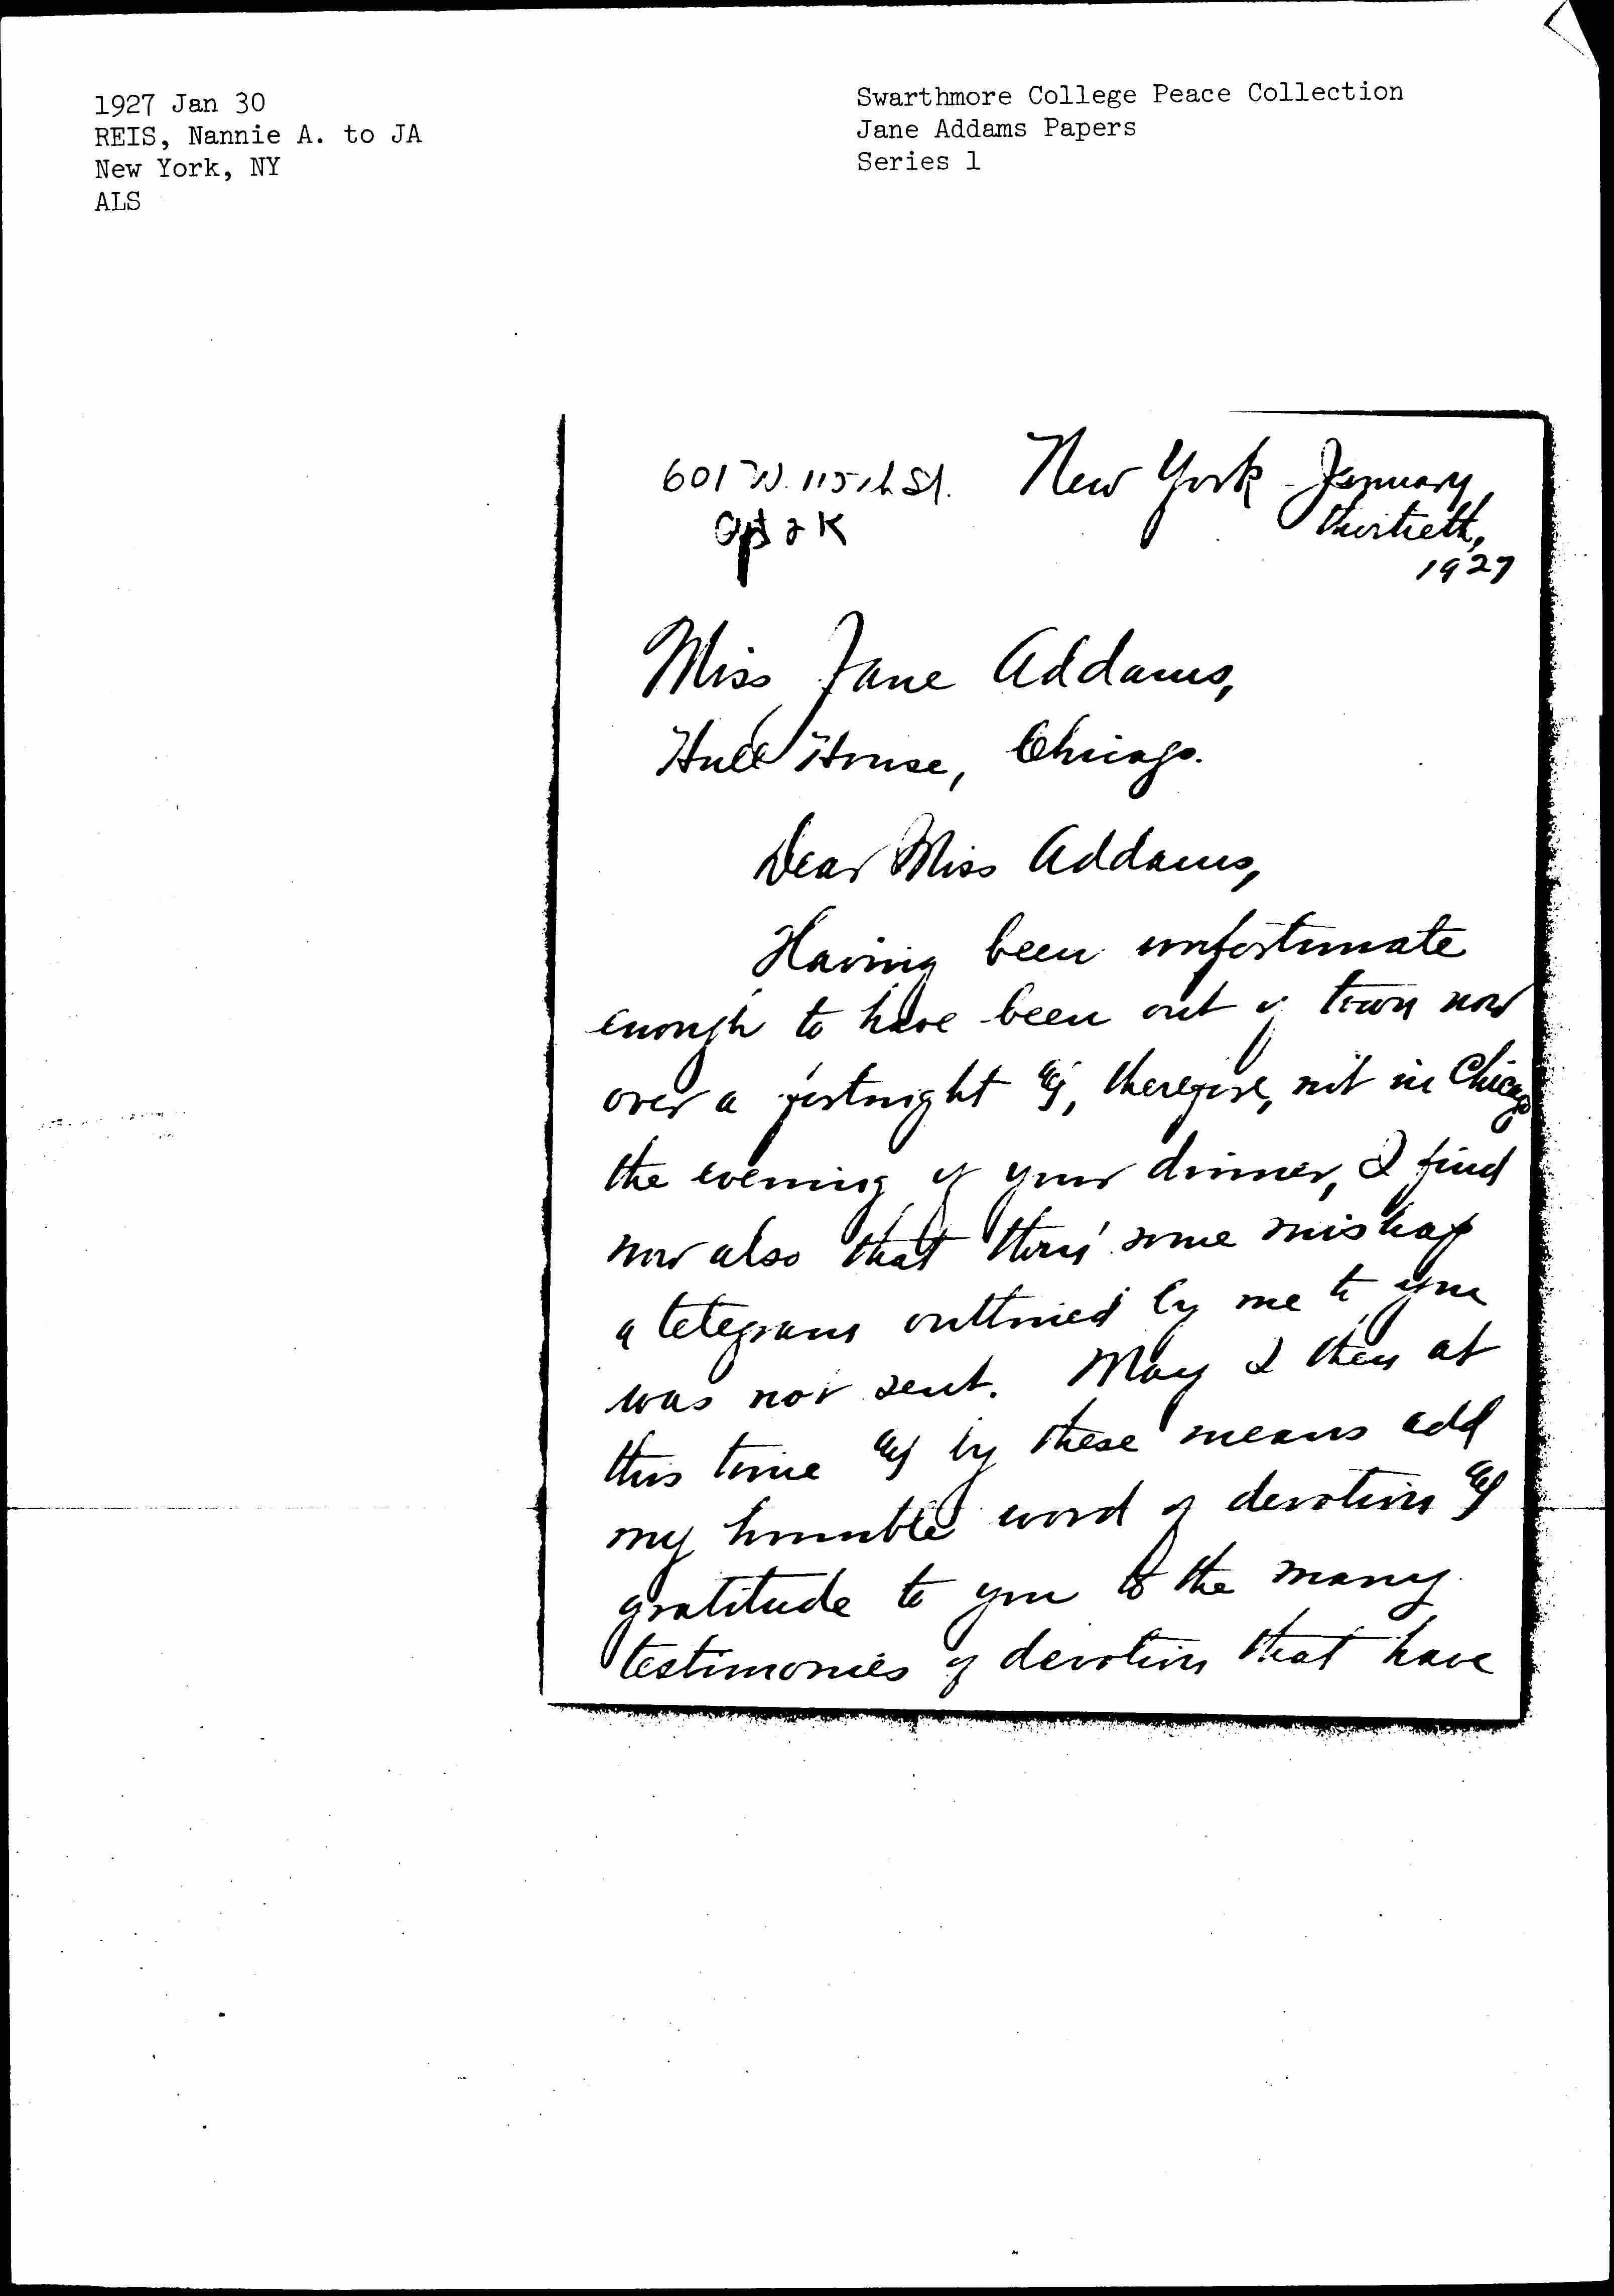 1927 Jan 30
REIS, Nannie A. to JA
New York, NY
ALS
Swarthmore College Peace Collection
Jane Addams Papers
Series 1
601 W. 115th St. New York - January
Apt 2K thirtieth,
1927
Miss Jane Addams,
Hull House, Chicago.
Dear Miss Addams,
Having been unfortunate
enough to have been out of town now
over a fortnight &, therefore, not in Chicago
the evening of your dinner, I find
now also that thru' some mishap
a telegram outlined by me to you
was not sent. May I then at
this time & by these means add
my humble word of devotion &
gratitude to you to the many
testimonies of devotion that have